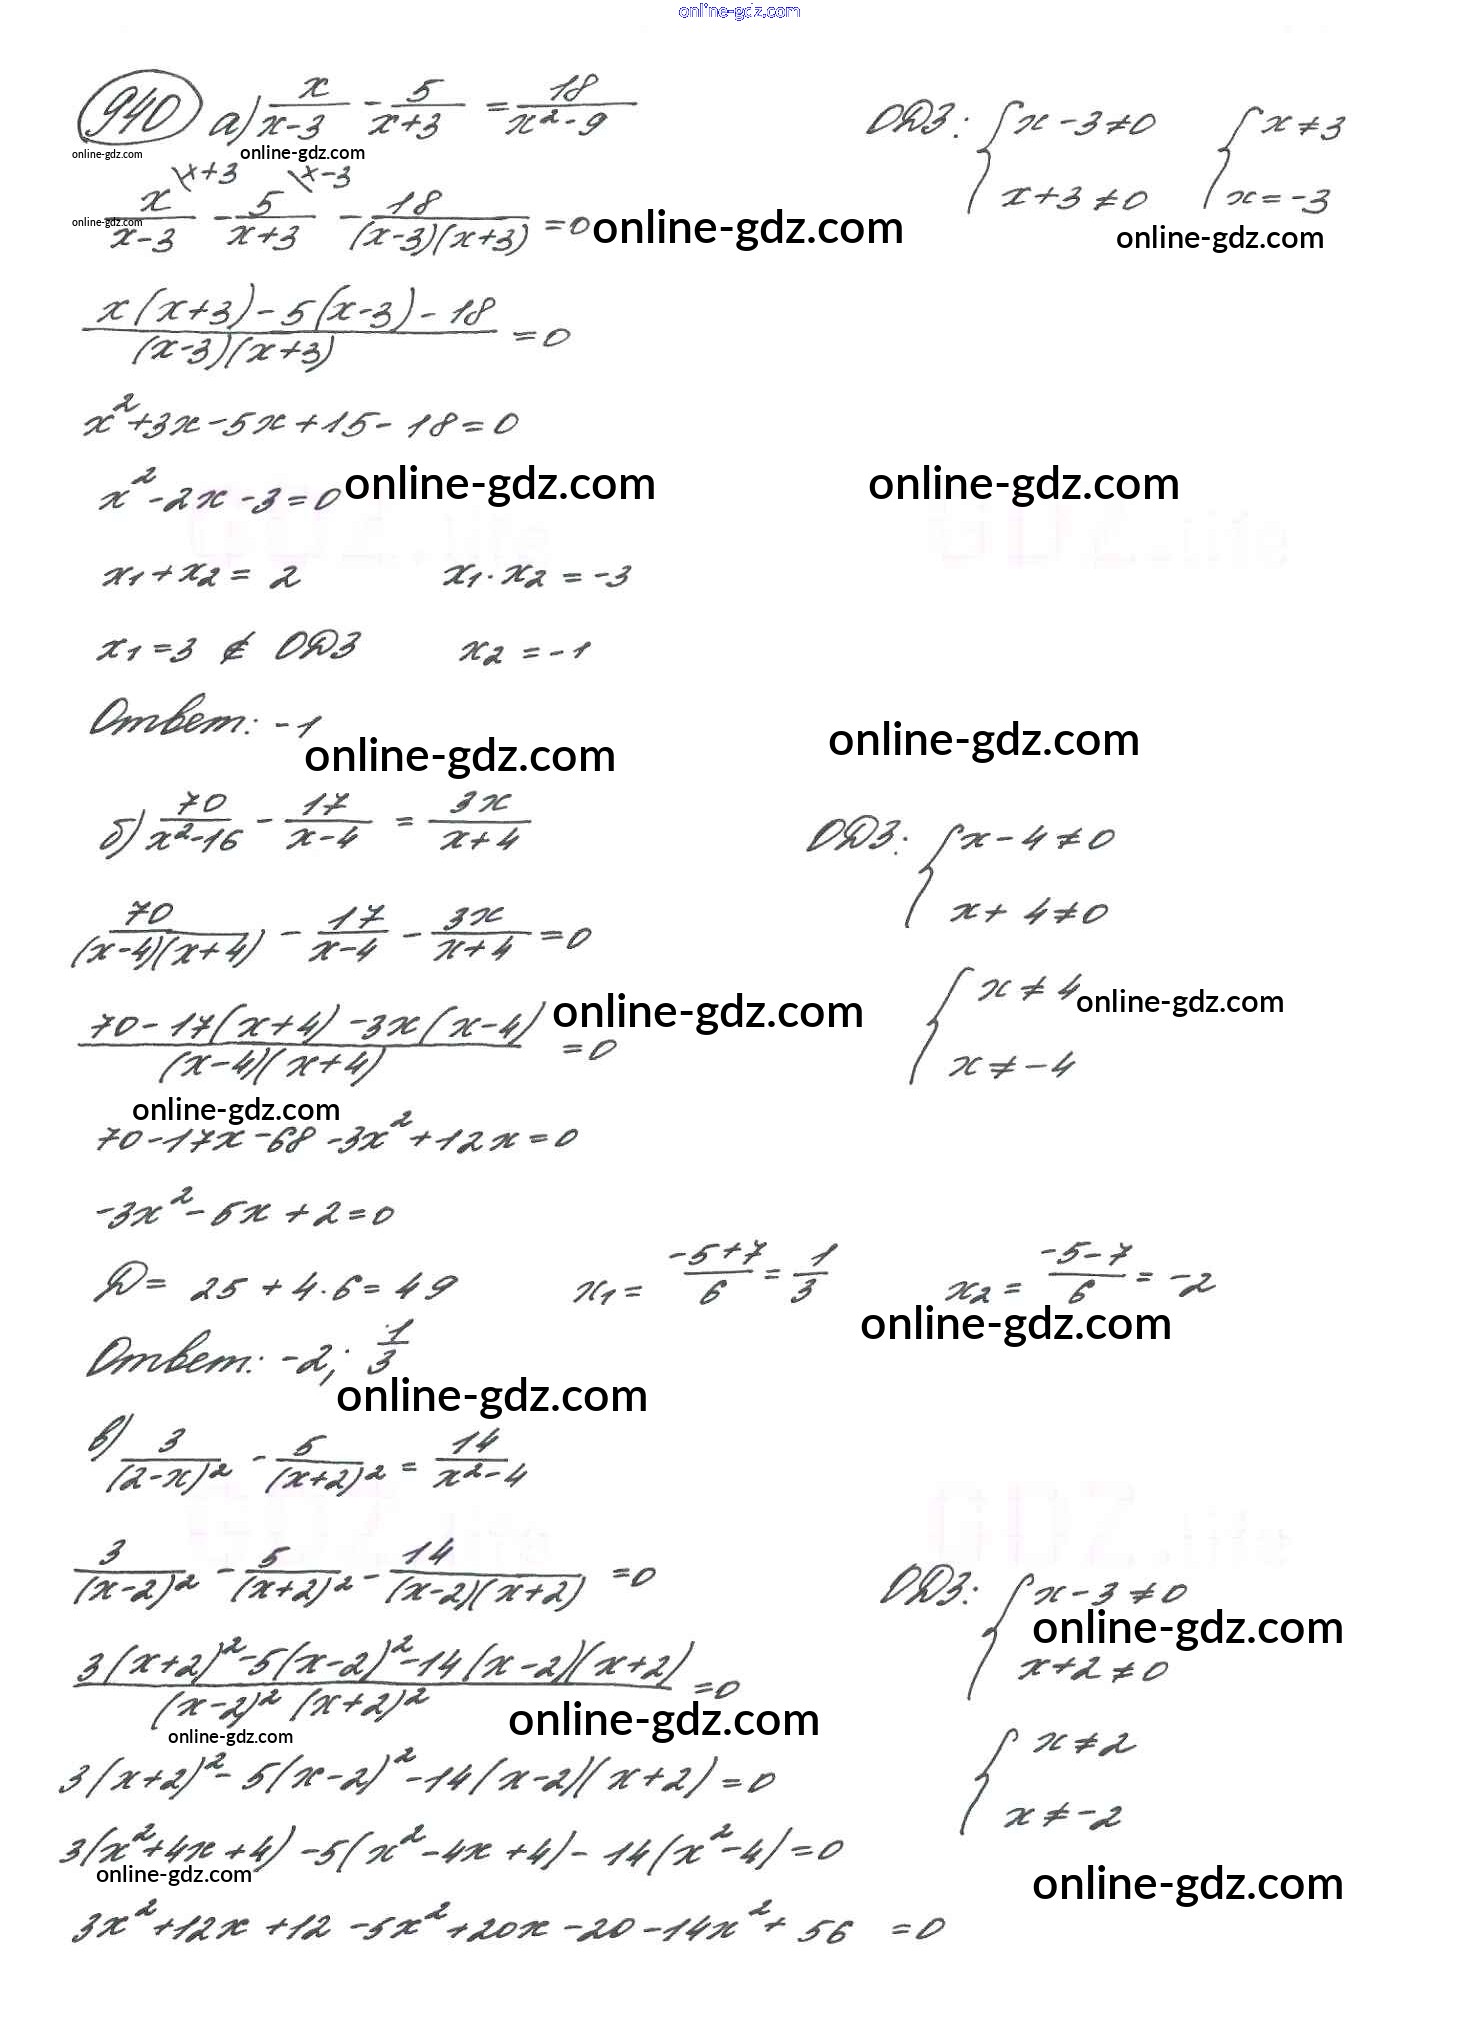 online-gdz.com
940 а) x/(x-3) - 5/(x+3) = 18/(x²-9) ОДЗ: { x-3≠0 { x≠3
online-gdz.com online-gdz.com
x+3≠0 x=-3
x/(x-3) \x+3 - 5/(x+3) \x-3 - 18/((x-3)(x+3)) =0 online-gdz.com
online-gdz.com online-gdz.com
(x(x+3)-5(x-3)-18)/((x-3)(x+3)) =0
x²+3x-5x+15-18=0
x²-2x-3=0 online-gdz.com online-gdz.com
GDZ.life GDZ.life
x₁+x₂=2 x₁·x₂=-3
x₁=3 ∉ ОДЗ x₂=-1
Ответ: -1
online-gdz.com online-gdz.com
б) 70/(x²-16) - 17/(x-4) = 3x/(x+4) ОДЗ: { x-4≠0
x+4≠0
70/((x-4)(x+4)) - 17/(x-4) - 3x/(x+4) =0
{ x≠4 online-gdz.com
x≠-4
(70-17(x+4)-3x(x-4))/((x-4)(x+4)) =0 online-gdz.com
online-gdz.com
70-17x-68-3x²+12x=0
-3x²-5x+2=0
D=25+4·6=49 x₁=(-5+7)/6=1/3 x₂=(-5-7)/6=-2
online-gdz.com
Ответ: -2; 1/3
online-gdz.com
в) 3/(2-x)² - 5/(x+2)² = 14/(x²-4)
GDZ.life GDZ.life
3/(x-2)² - 5/(x+2)² - 14/((x-2)(x+2)) =0 ОДЗ: { x-3≠0
online-gdz.com
x+2≠0
(3(x+2)²-5(x-2)²-14(x-2)(x+2))/((x-2)²(x+2)²) =0
online-gdz.com online-gdz.com
{ x≠2
x≠-2
3(x+2)²-5(x-2)²-14(x-2)(x+2)=0
3(x²+4x+4)-5(x²-4x+4)-14(x²-4)=0
online-gdz.com online-gdz.com
3x²+12x+12-5x²+20x-20-14x²+56=0